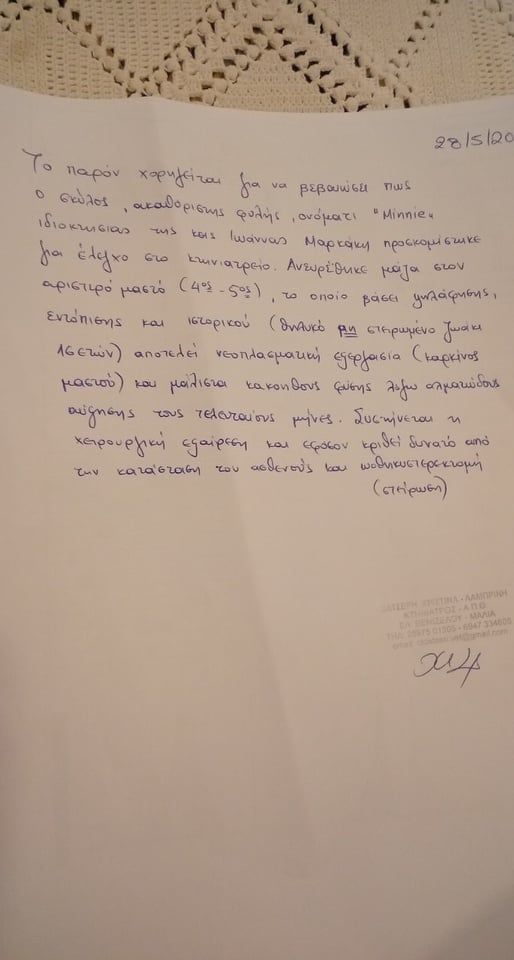 28/5/20
Το παρόν χορηγείται για να βεβαιώσει πως
ο σκύλος, ακαθόριστης φυλής, ονόματι "Minnie"
ιδιοκτησίας της κας Ιωάννας Μαρκάκη προσκομίστηκε
για έλεγχο στο κτηνιατρείο. Ανευρέθηκε μάζα στον
αριστερό μαστό (4ος - 5ος), το οποίο βάσει ψηλάφησης,
εντόπισης και ιστορικού (θηλυκό μη στειρωμένο ζωάκι
15ετών) αποτελεί νεοπλασματική εξεργασία (καρκίνος
μαστού) και μάλιστα κακοήθους φύσης λόγω αλματώδους
αύξησης τους τελευταίους μήνες. Συστήνεται η
χειρουργική εξαίρεση και εφόσον κριθεί δυνατό από
την κατάσταση του ασθενούς και ωοθηκυστερεκτομή
(στείρωση)
ΧΡΙΣΤΙΝΑ - ΛΑΜΠΡΙΝΗ
ΚΤΗΝΙΑΤΡΟΣ - Α.Π.Θ.
ΕΛ. ΒΕΝΙΖΕΛΟΥ - ΜΑΛΙΑ
ΤΗΛ. 28975 01505 - 6947 334605
email: @gmail.com